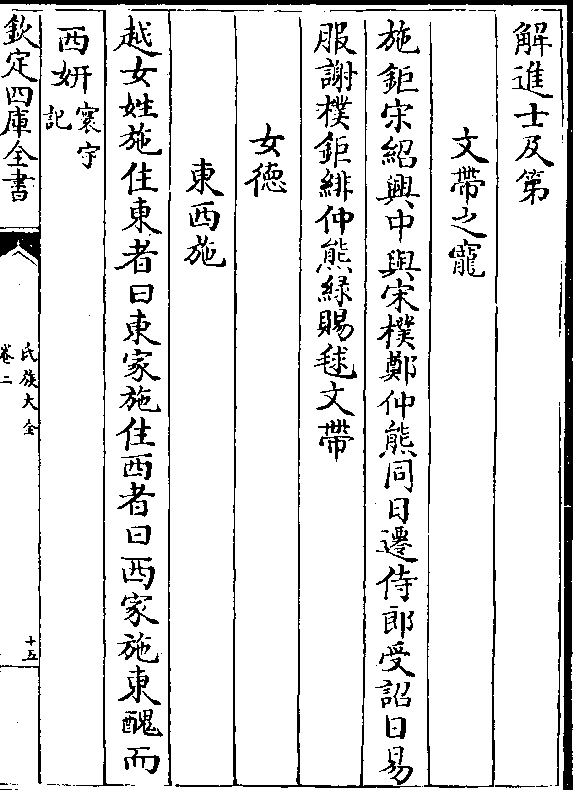 解進士及第
文帶之寵
施鉅宋紹興中與宋樸鄭仲熊同日遷侍郎受詔日易
服謝樸鉅緋仲熊緑賜毬文帶
女徳
東西施
越女姓施住東者曰東家施住西者曰西家施東醜而
西妍寰宇記
欽定四庫全書
氏族大全
卷二
十五